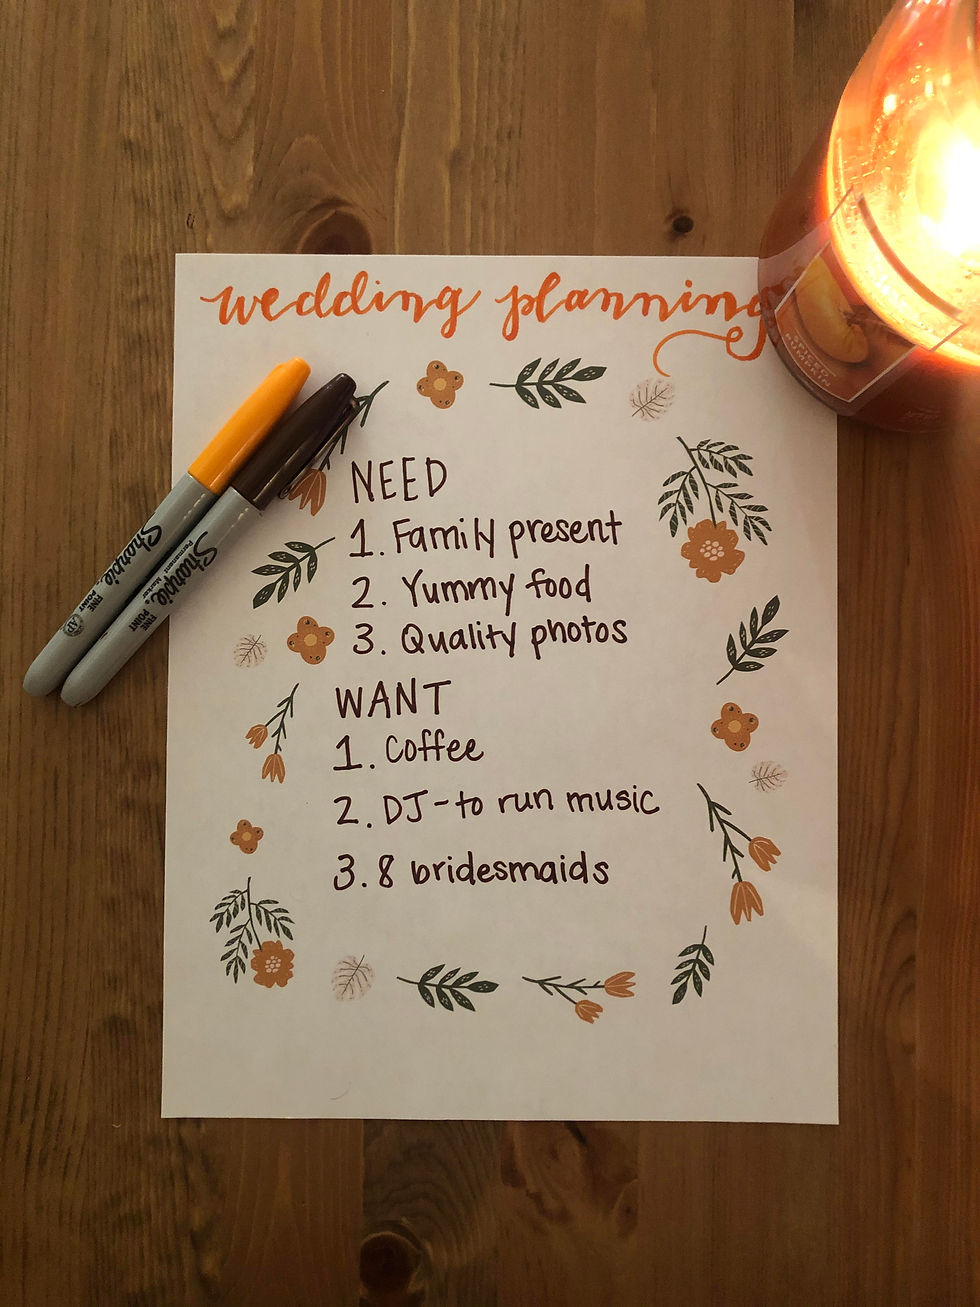 wedding planning
NEED
1. Family present
2. Yummy food
3. Quality photos
WANT
1. Coffee
2. DJ-to run music
3. 8 bridesmaids
Sharpie
FINE
POINT
AP
Sharpie
Permanent Marker
FINE
POINT
SPICED
PUMPKIN